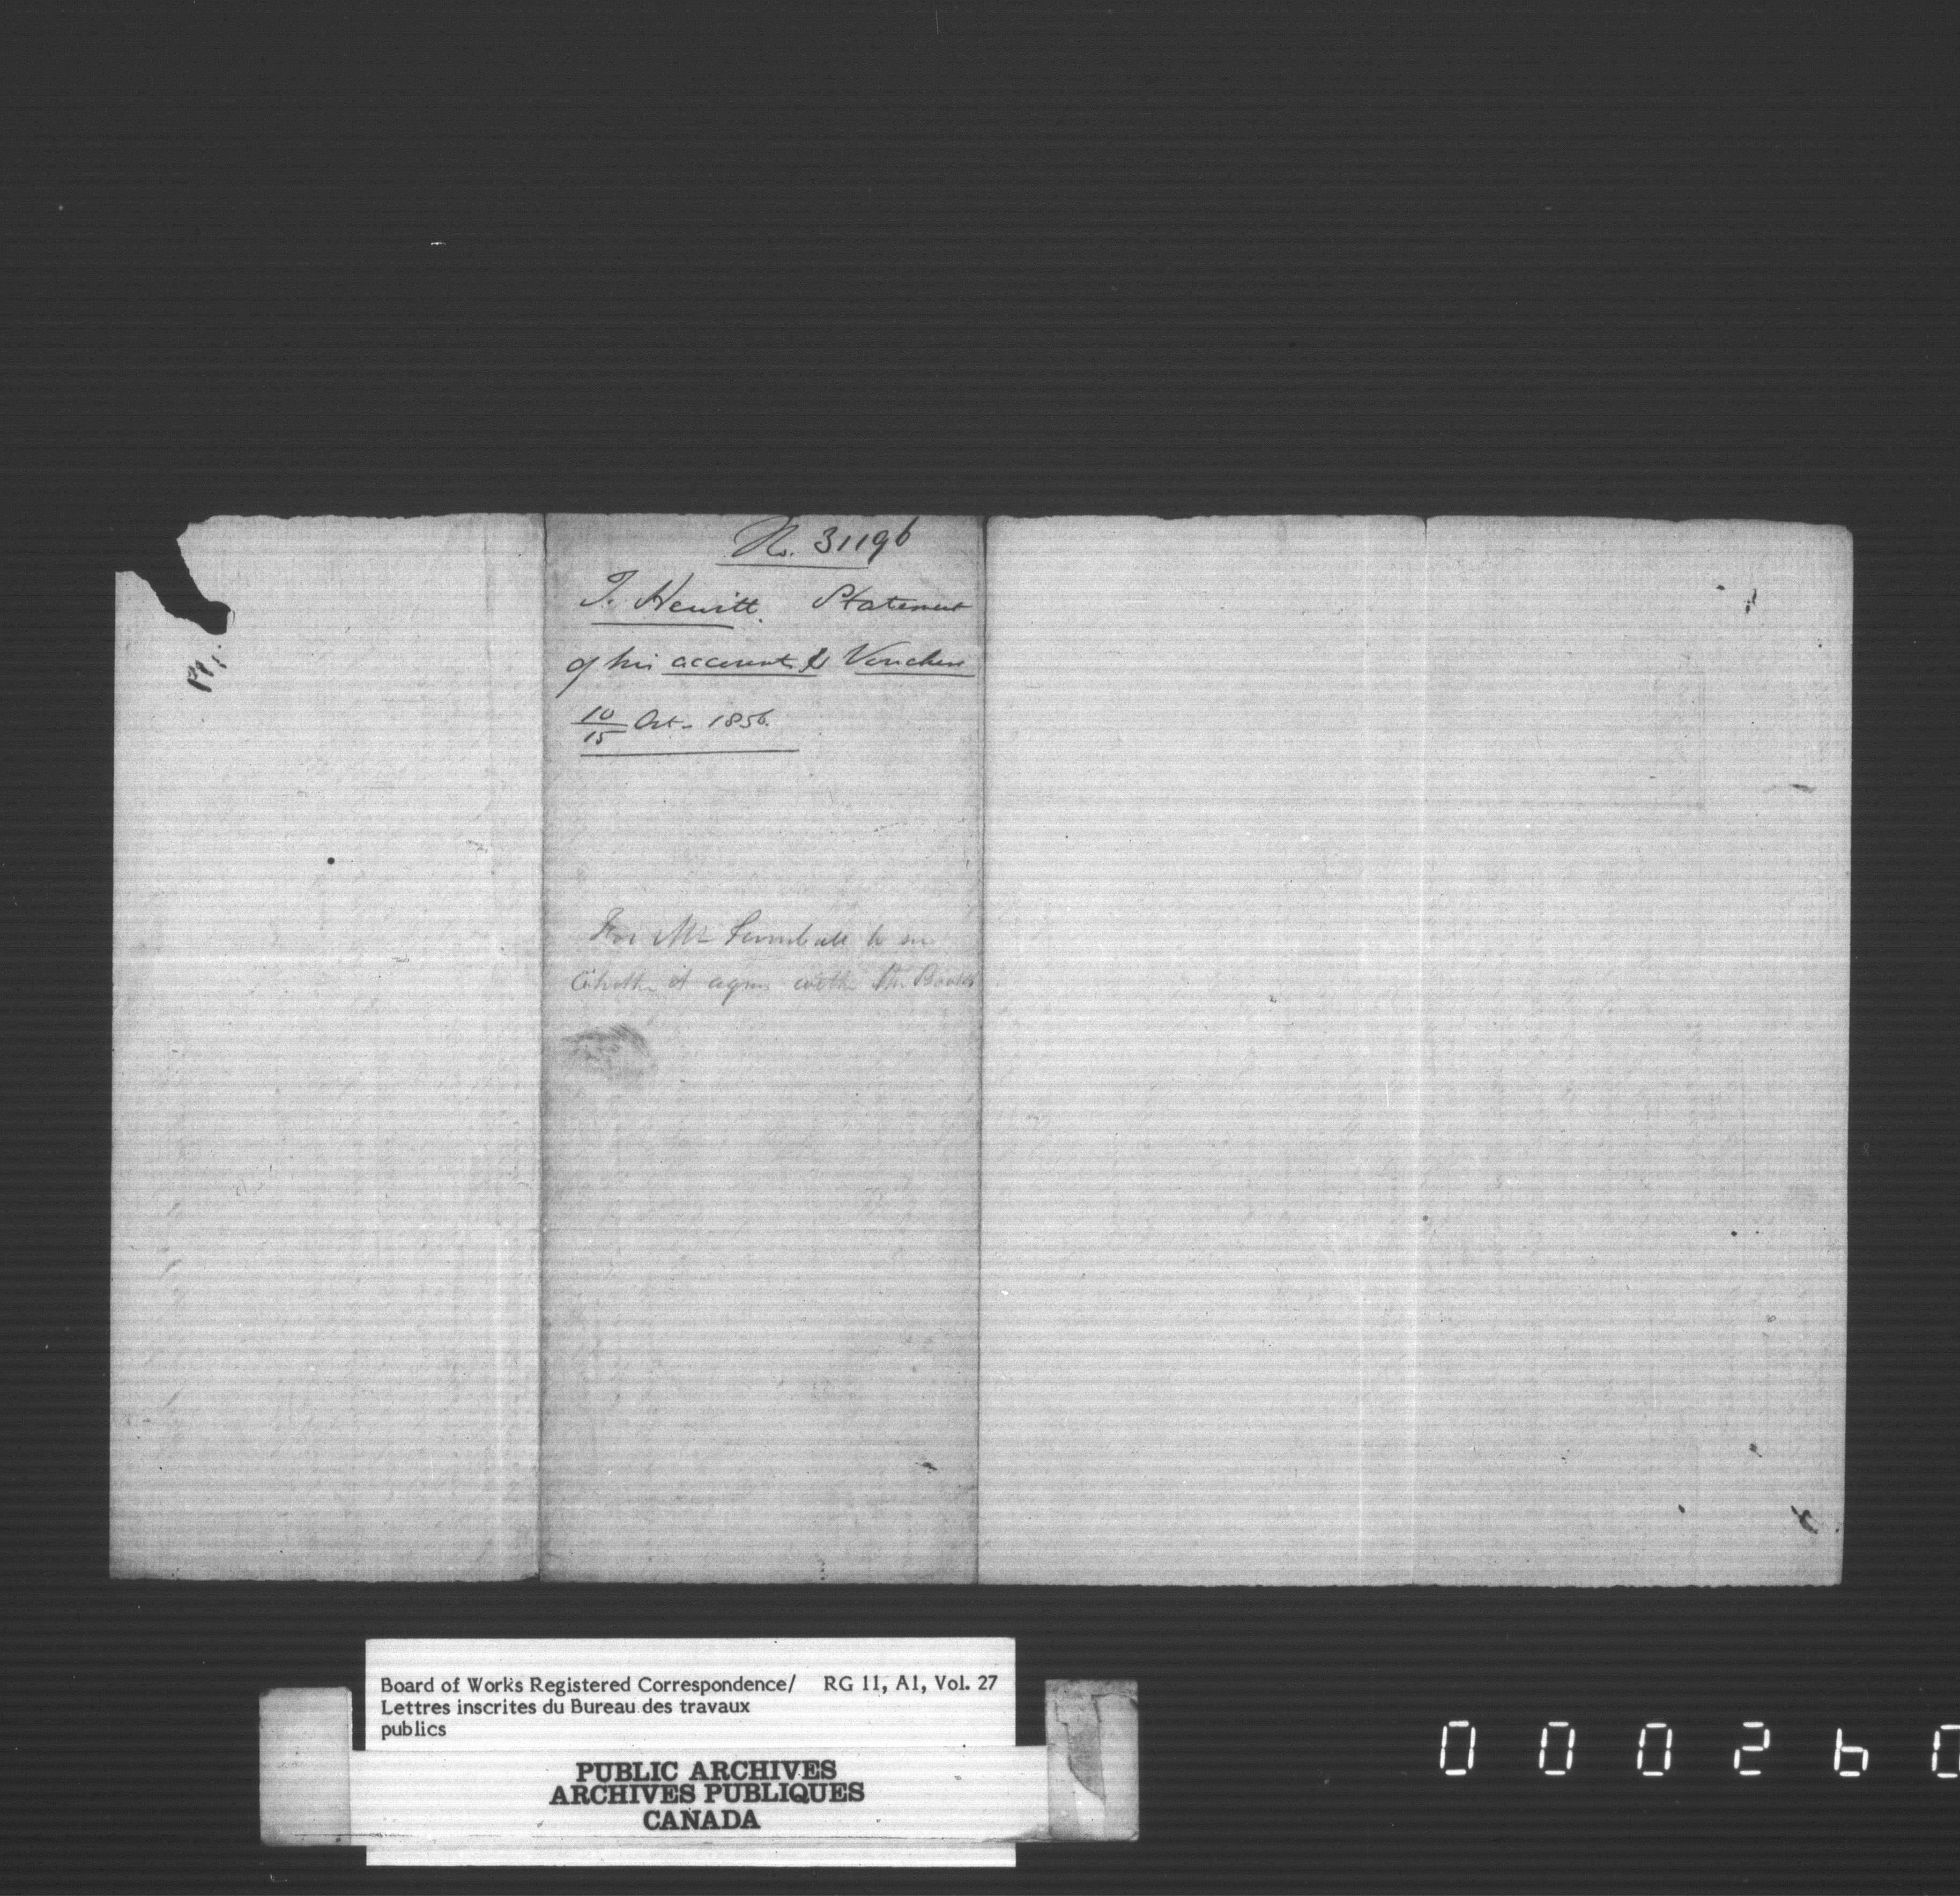 No. 31196
T. Hewitt. Statement
of his accounts & Vouchers
10/15 Oct - 1856.
For Mr Turnbull to see
whether it agrees with the Books
Board of Works Registered Correspondence/ RG 11, A1, Vol. 27
Lettres inscrites du Bureau des travaux
publics
PUBLIC ARCHIVES
ARCHIVES PUBLIQUES
CANADA
00026